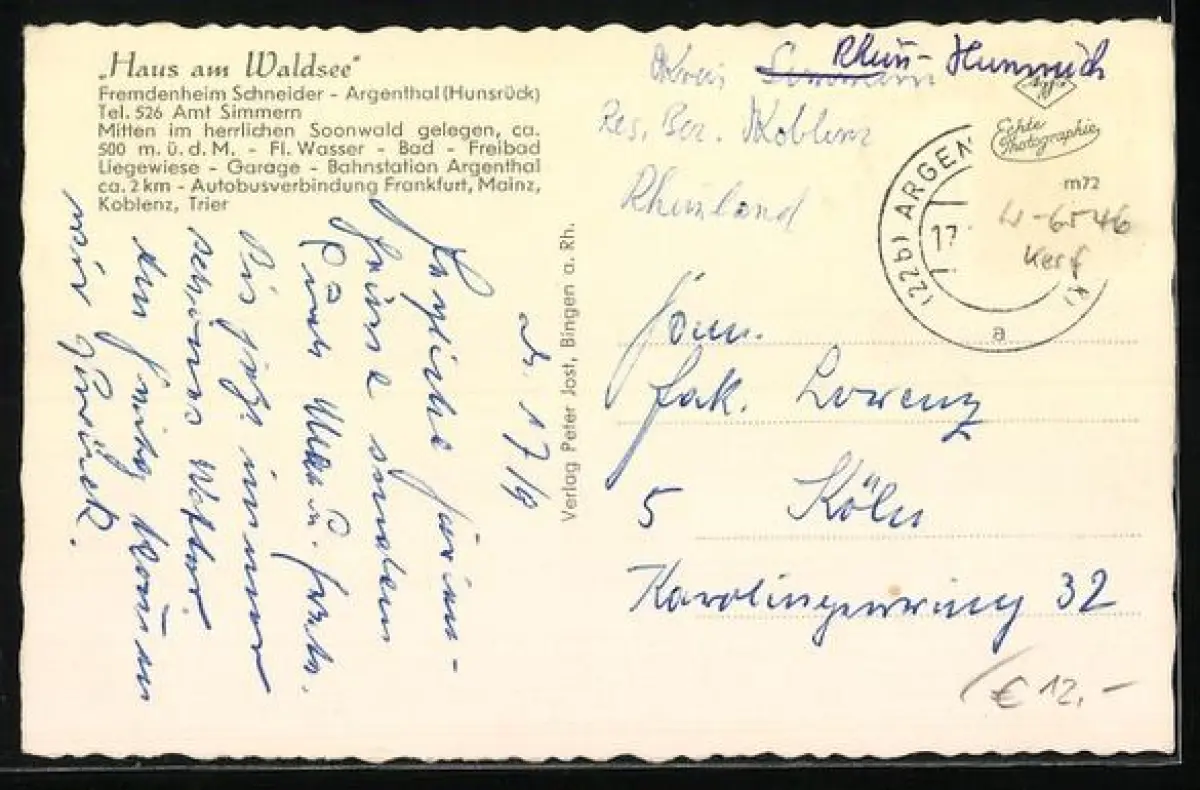 „Haus am Waldsee“
Fremdenheim Schneider - Argenthal (Hunsrück)
Tel. 526 Amt Simmern
Mitten im herrlichen Soonwald gelegen, ca.
500 m. ü. d. M. - Fl. Wasser - Bad - Freibad
Liegewiese - Garage - Bahnstation Argenthal
ca. 2 km - Autobusverbindung Frankfurt, Mainz,
Koblenz, Trier
d. 17/9
Herzliche
Grüße senden
u.
Bis jetzt immer
schönes Wetter.
Am
wir zurück.
Verlag Peter Jost, Bingen a. Rh.
Kreis Simmern Rhein-Hunsrück
Reg. Bez. Koblenz
Rheinland
Agfa
Echte
Photographie
m72
(22b) ARGEN
17
K)
a
W-6546
Fam.
Jak. Lorenz
5 Köln
Karolingerring 32
€ 12,-